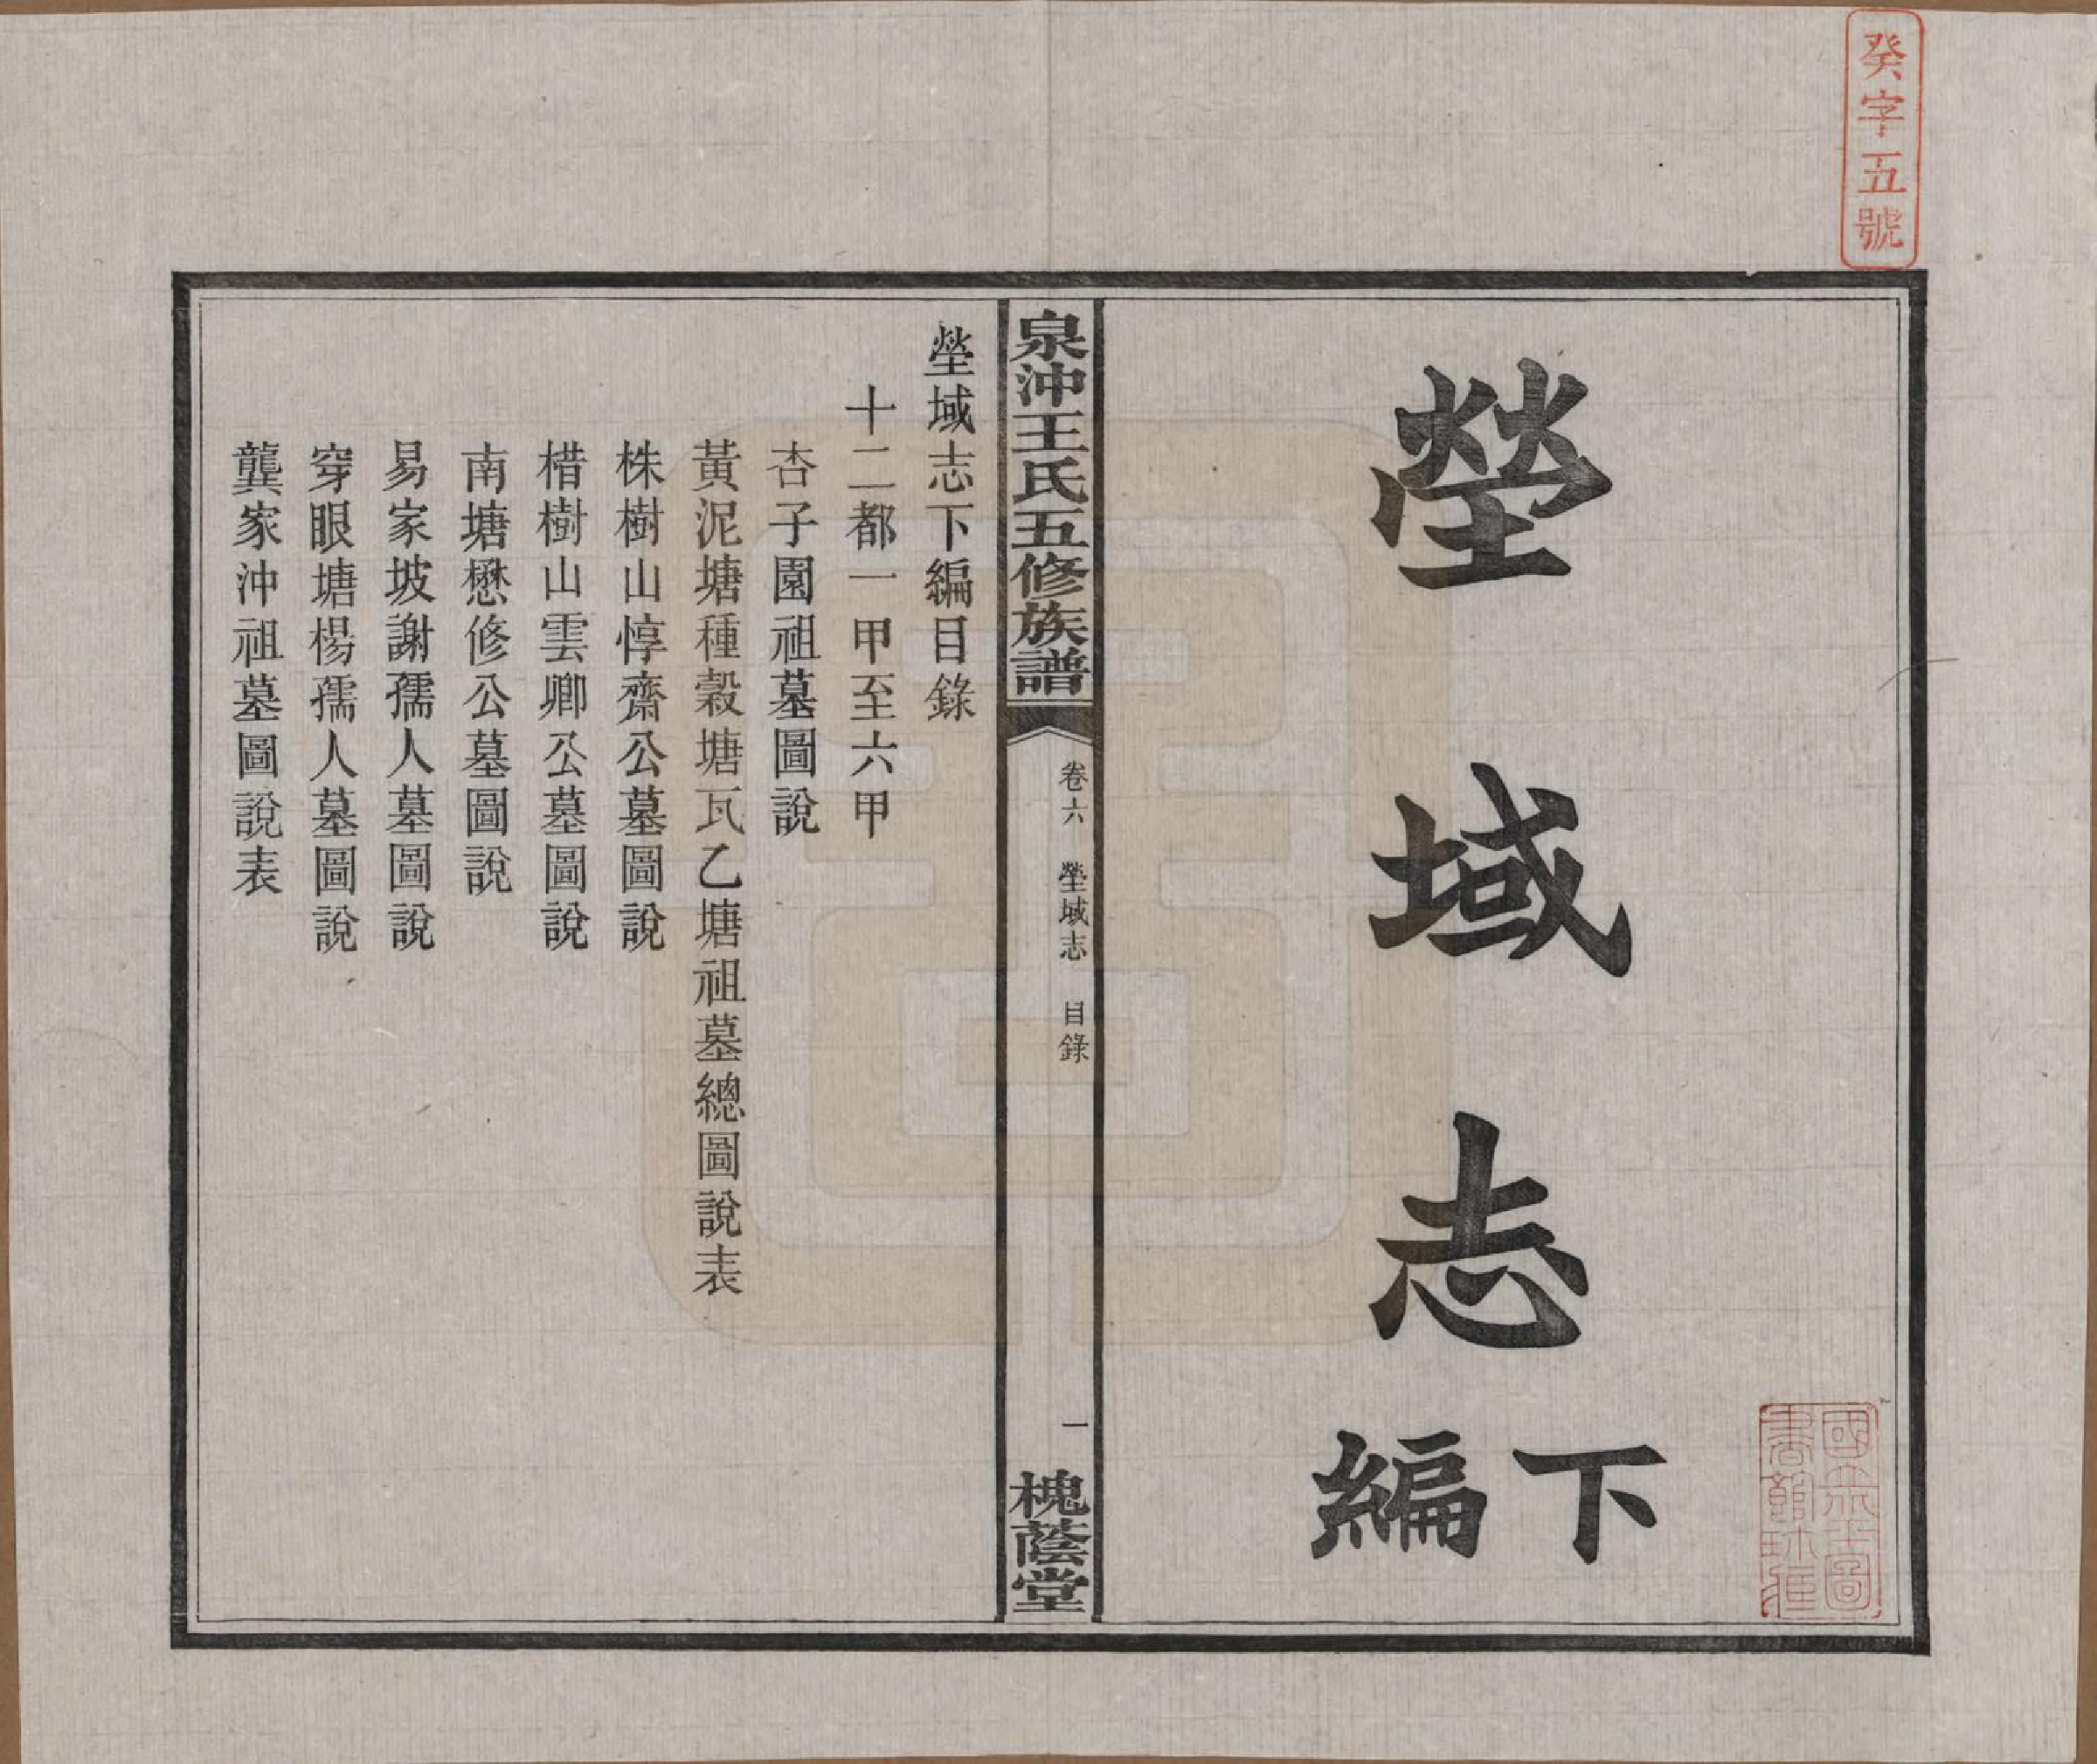 癸字五號
塋域志
下編
國立北平圖書館珍藏
泉沖王氏五修族譜
卷六 塋域志 目錄
一
槐蔭堂
塋域志下編目錄
十二都一甲至六甲
杏子園祖墓圖說
黃泥塘種穀塘瓦乙塘祖墓總圖說表
株樹山惇齋公墓圖說
楷樹山雲卿公墓圖說
南塘懋修公墓圖說
易家坡謝孺人墓圖說
穿眼塘楊孺人墓圖說
龔家沖祖墓圖說表